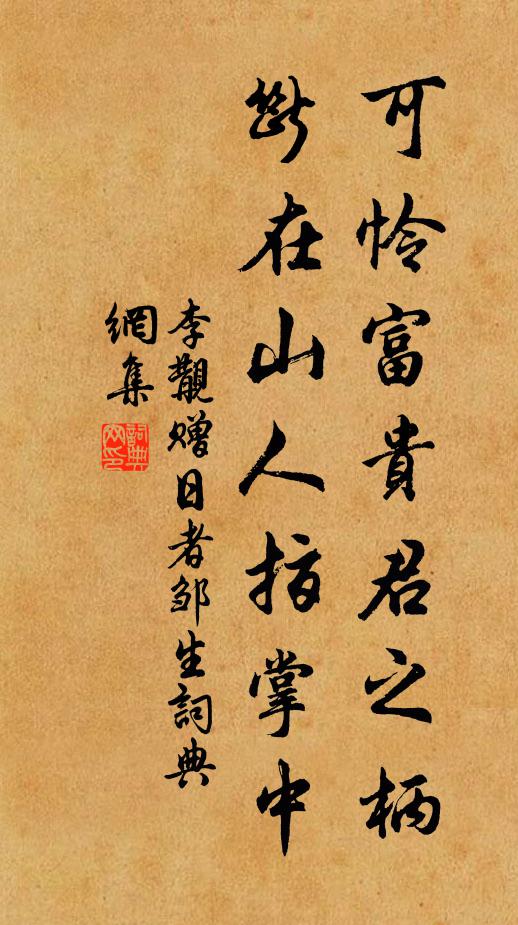 可怜富貴君之柄
斷在山人指掌中
李覯赠日者邹生詞典
網集
詞典
网印